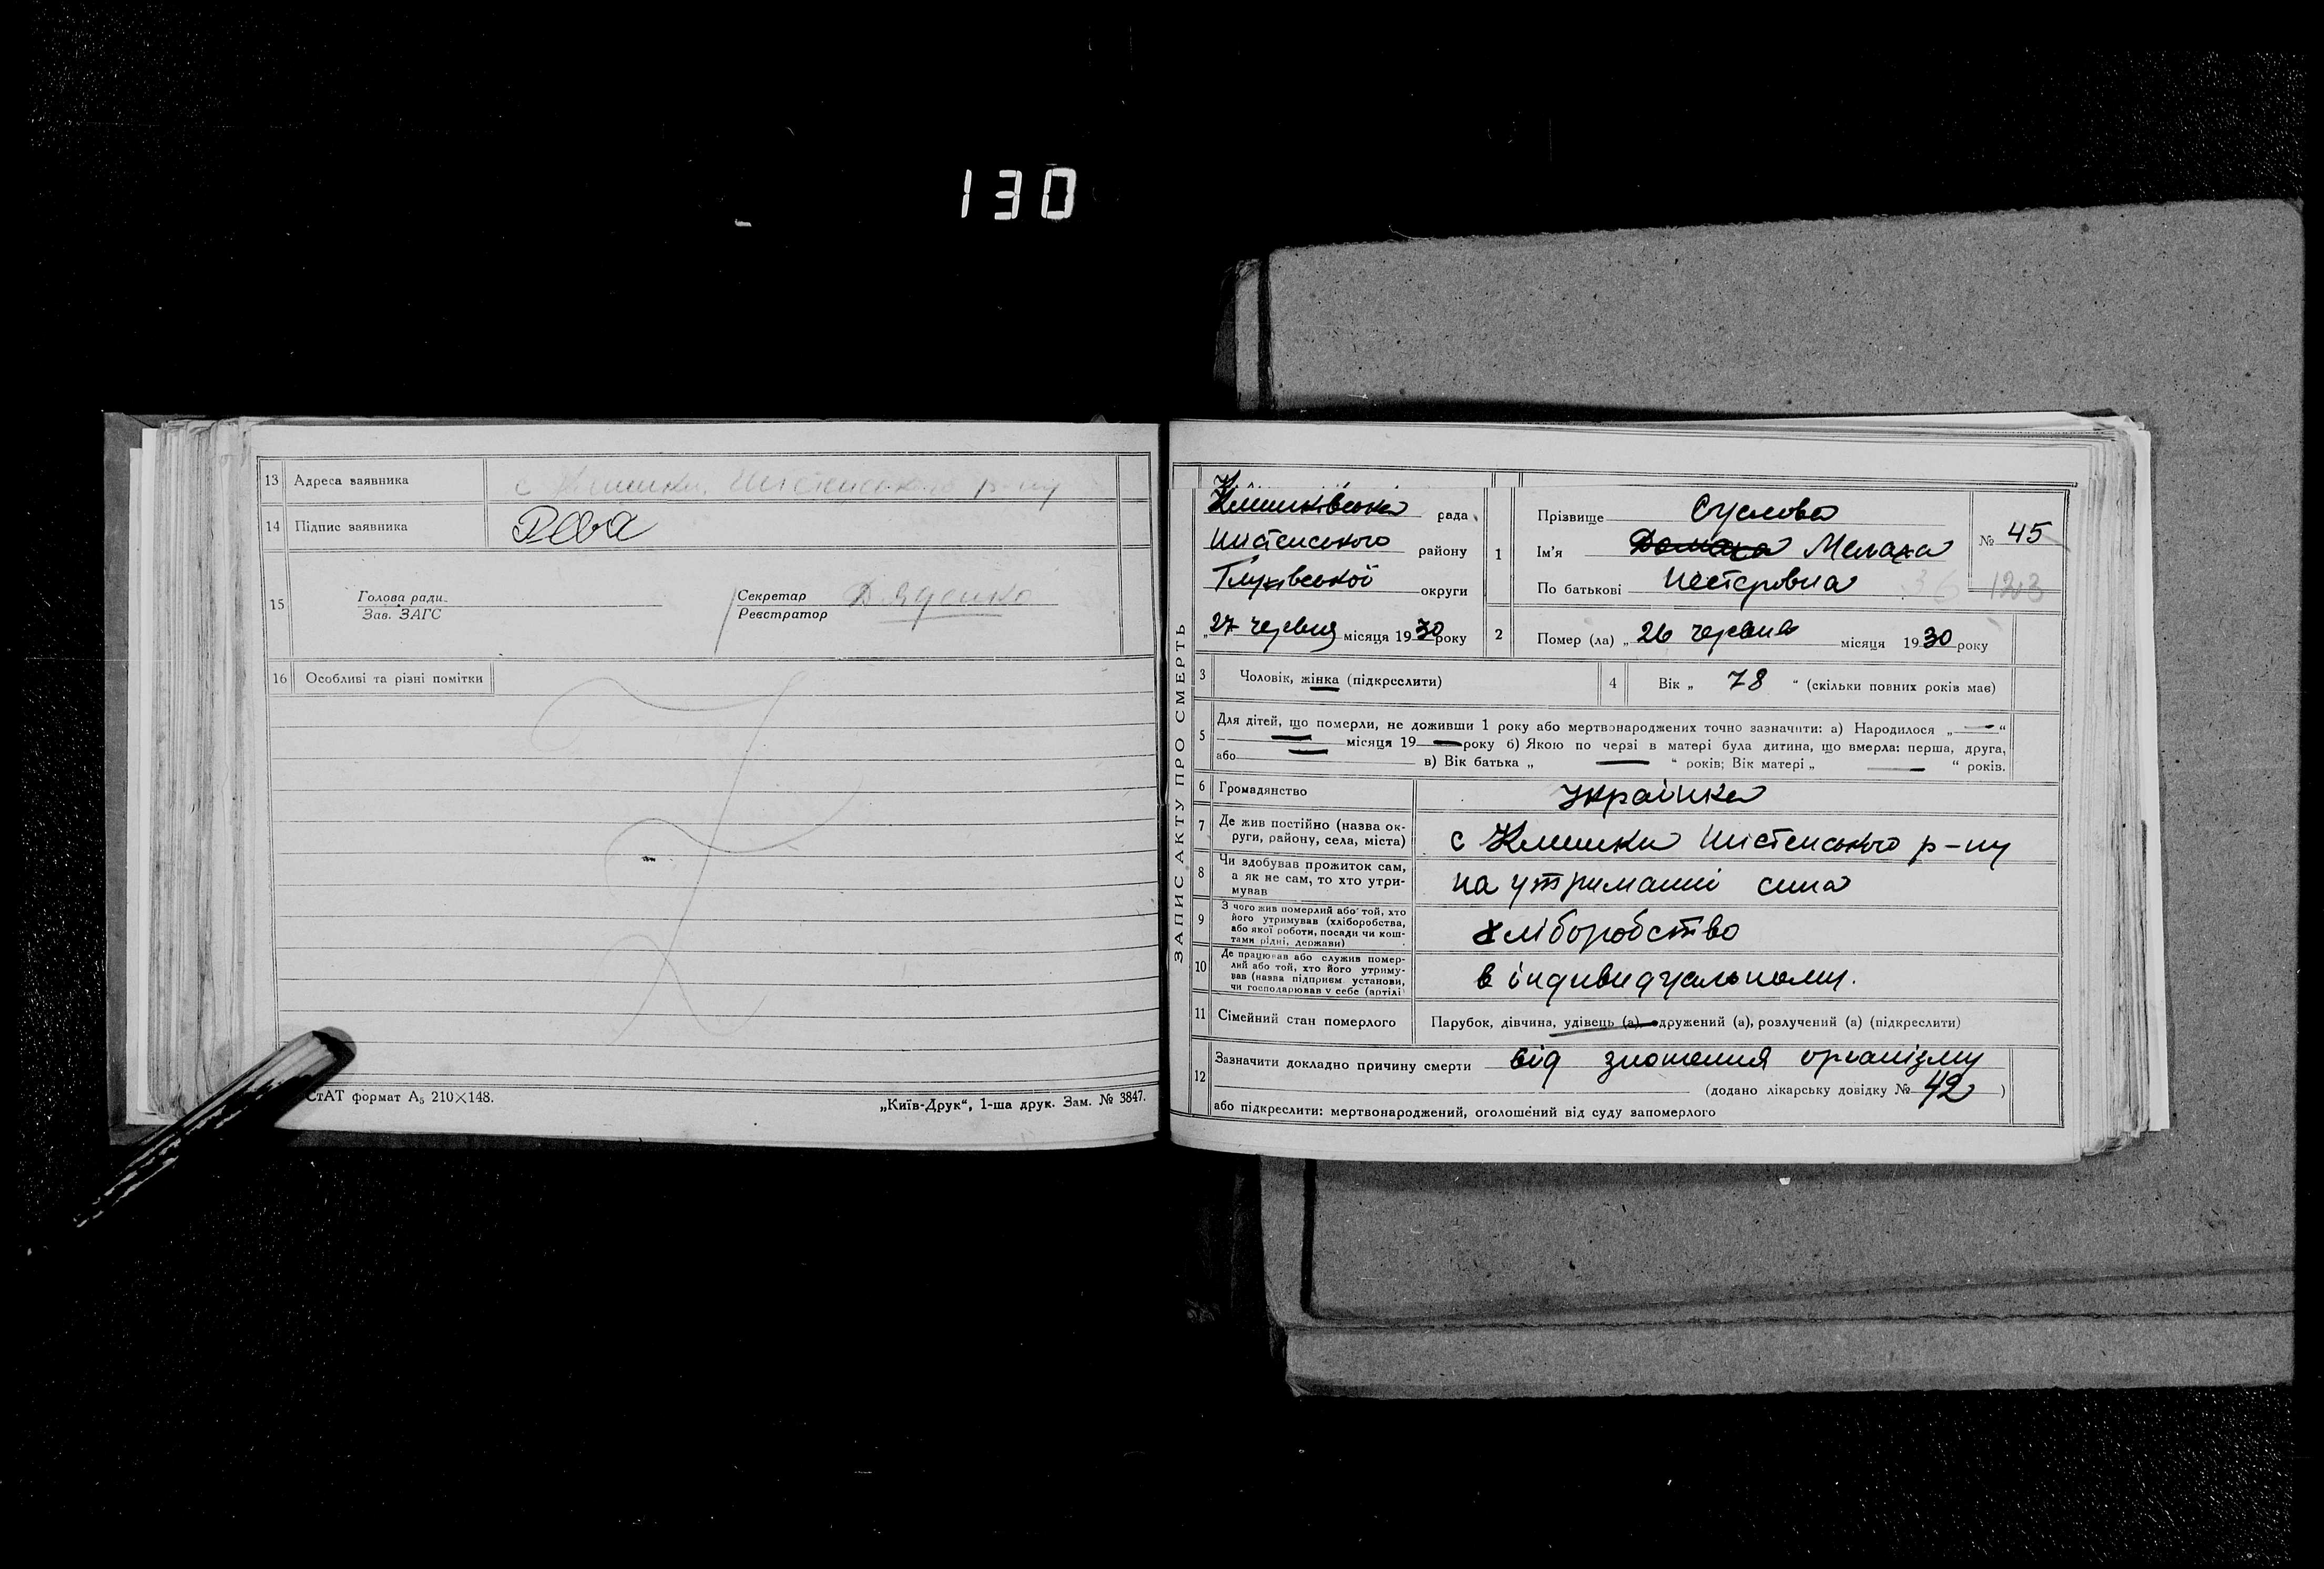 130
13 Адреса заявника с Клишки, Шостенського р-ну
14 Підпис заявника Рева
15 Голова ради
Зав. ЗАГС
Секретар
Реєстратор Дяденко
16 Особливі та різні помітки
СтАТ формат А₅ 210×148.
„Київ-Друк“, 1-ша друк. Зам. № 3847.
ЗАПИС АКТУ ПРО СМЕРТЬ
Клишківська рада
Шостенського району
Глухівської округи
„27 червня місяця 1930 року
1 Прізвище Суслова
Ім'я Домаха Мелаха
По батькові Нестеровна
№ 45
36 123
2 Помер (ла) „ 26 червня місяця 1930 року
3 Чоловік, жінка (підкреслити)
4 Вік „ 78 “ (скільки повних років має)
5 Для дітей, що померли, не доживши 1 року або мертвонароджених точно зазначити: а) Народилося „ — “
— місяця 19 — року б) Якою по черзі в матері була дитина, що вмерла: перша, друга,
або — в) Вік батька „ — “ років; Вік матері „ — “ років.
6 Громадянство Українка
7 Де жив постійно (назва ок-
руги, району, села, міста) с Клишки Шостенського р-ну
8 Чи здобував прожиток сам,
а як не сам, то хто утри-
мував на утриманні сина
9 З чого жив померлий або той, хто
його утримував (хліборобства,
або якої роботи, посади чи кош-
тами рідні, держави) хліборобство
10 Де працював або служив помер-
лий або той, хто його утриму-
вав (назва підприєм установи,
чи господарював у себе (артілі) в індивидуальному.
11 Сімейний стан померлого Парубок, дівчина, удівець (а), одружений (а), розлучений (а) (підкреслити)
12 Зазначити докладно причину смерти від зношення організму
(додано лікарську довідку № 42 )
або підкреслити: мертвонароджений, оголошений від суду запомерлого